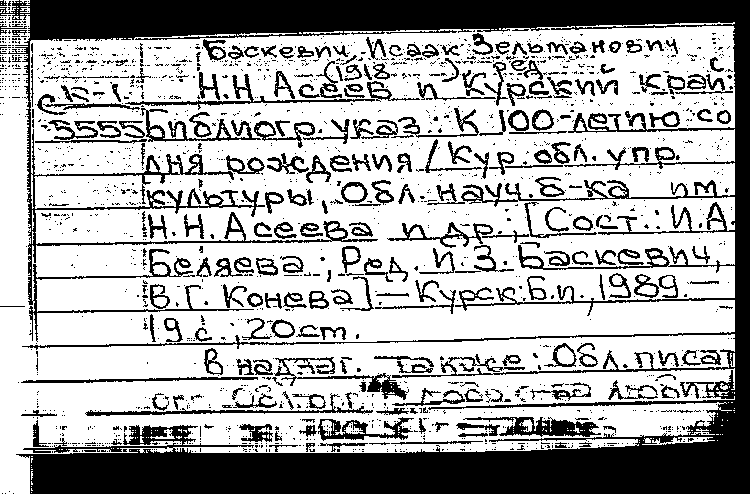 Баскевич Исаак Зельманович
(1918        ), ред.
ск-1 Н.Н. Асеев и Курский край:
5555 Библиогр. указ.: К 100-летию со
дня рождения / Кур. обл. упр.
культуры, Обл. науч. б-ка им.
Н.Н. Асеева и др.; [Сост.: И.А.
Беляева; Ред. И.З. Баскевич,
В.Г. Конева].— Курск: Б.и., 1989.—
19 с.; 20 см.
В надзаг. также: Обл. писат
орг. Обл. орг.